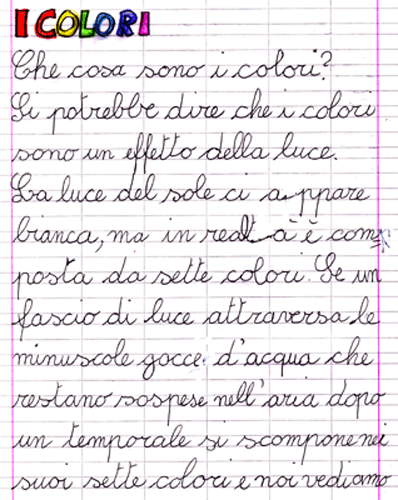 I COLORI
Che cosa sono i colori?
Si potrebbe dire che i colori
sono un effetto della luce.
La luce del sole ci appare
bianca, ma in realtà è com=
posta da sette colori. Se un
fascio di luce attraversa le
minuscole gocce d'acqua che
restano sospese nell'aria dopo
un temporale si scompone nei
suoi sette colori e noi vediamo